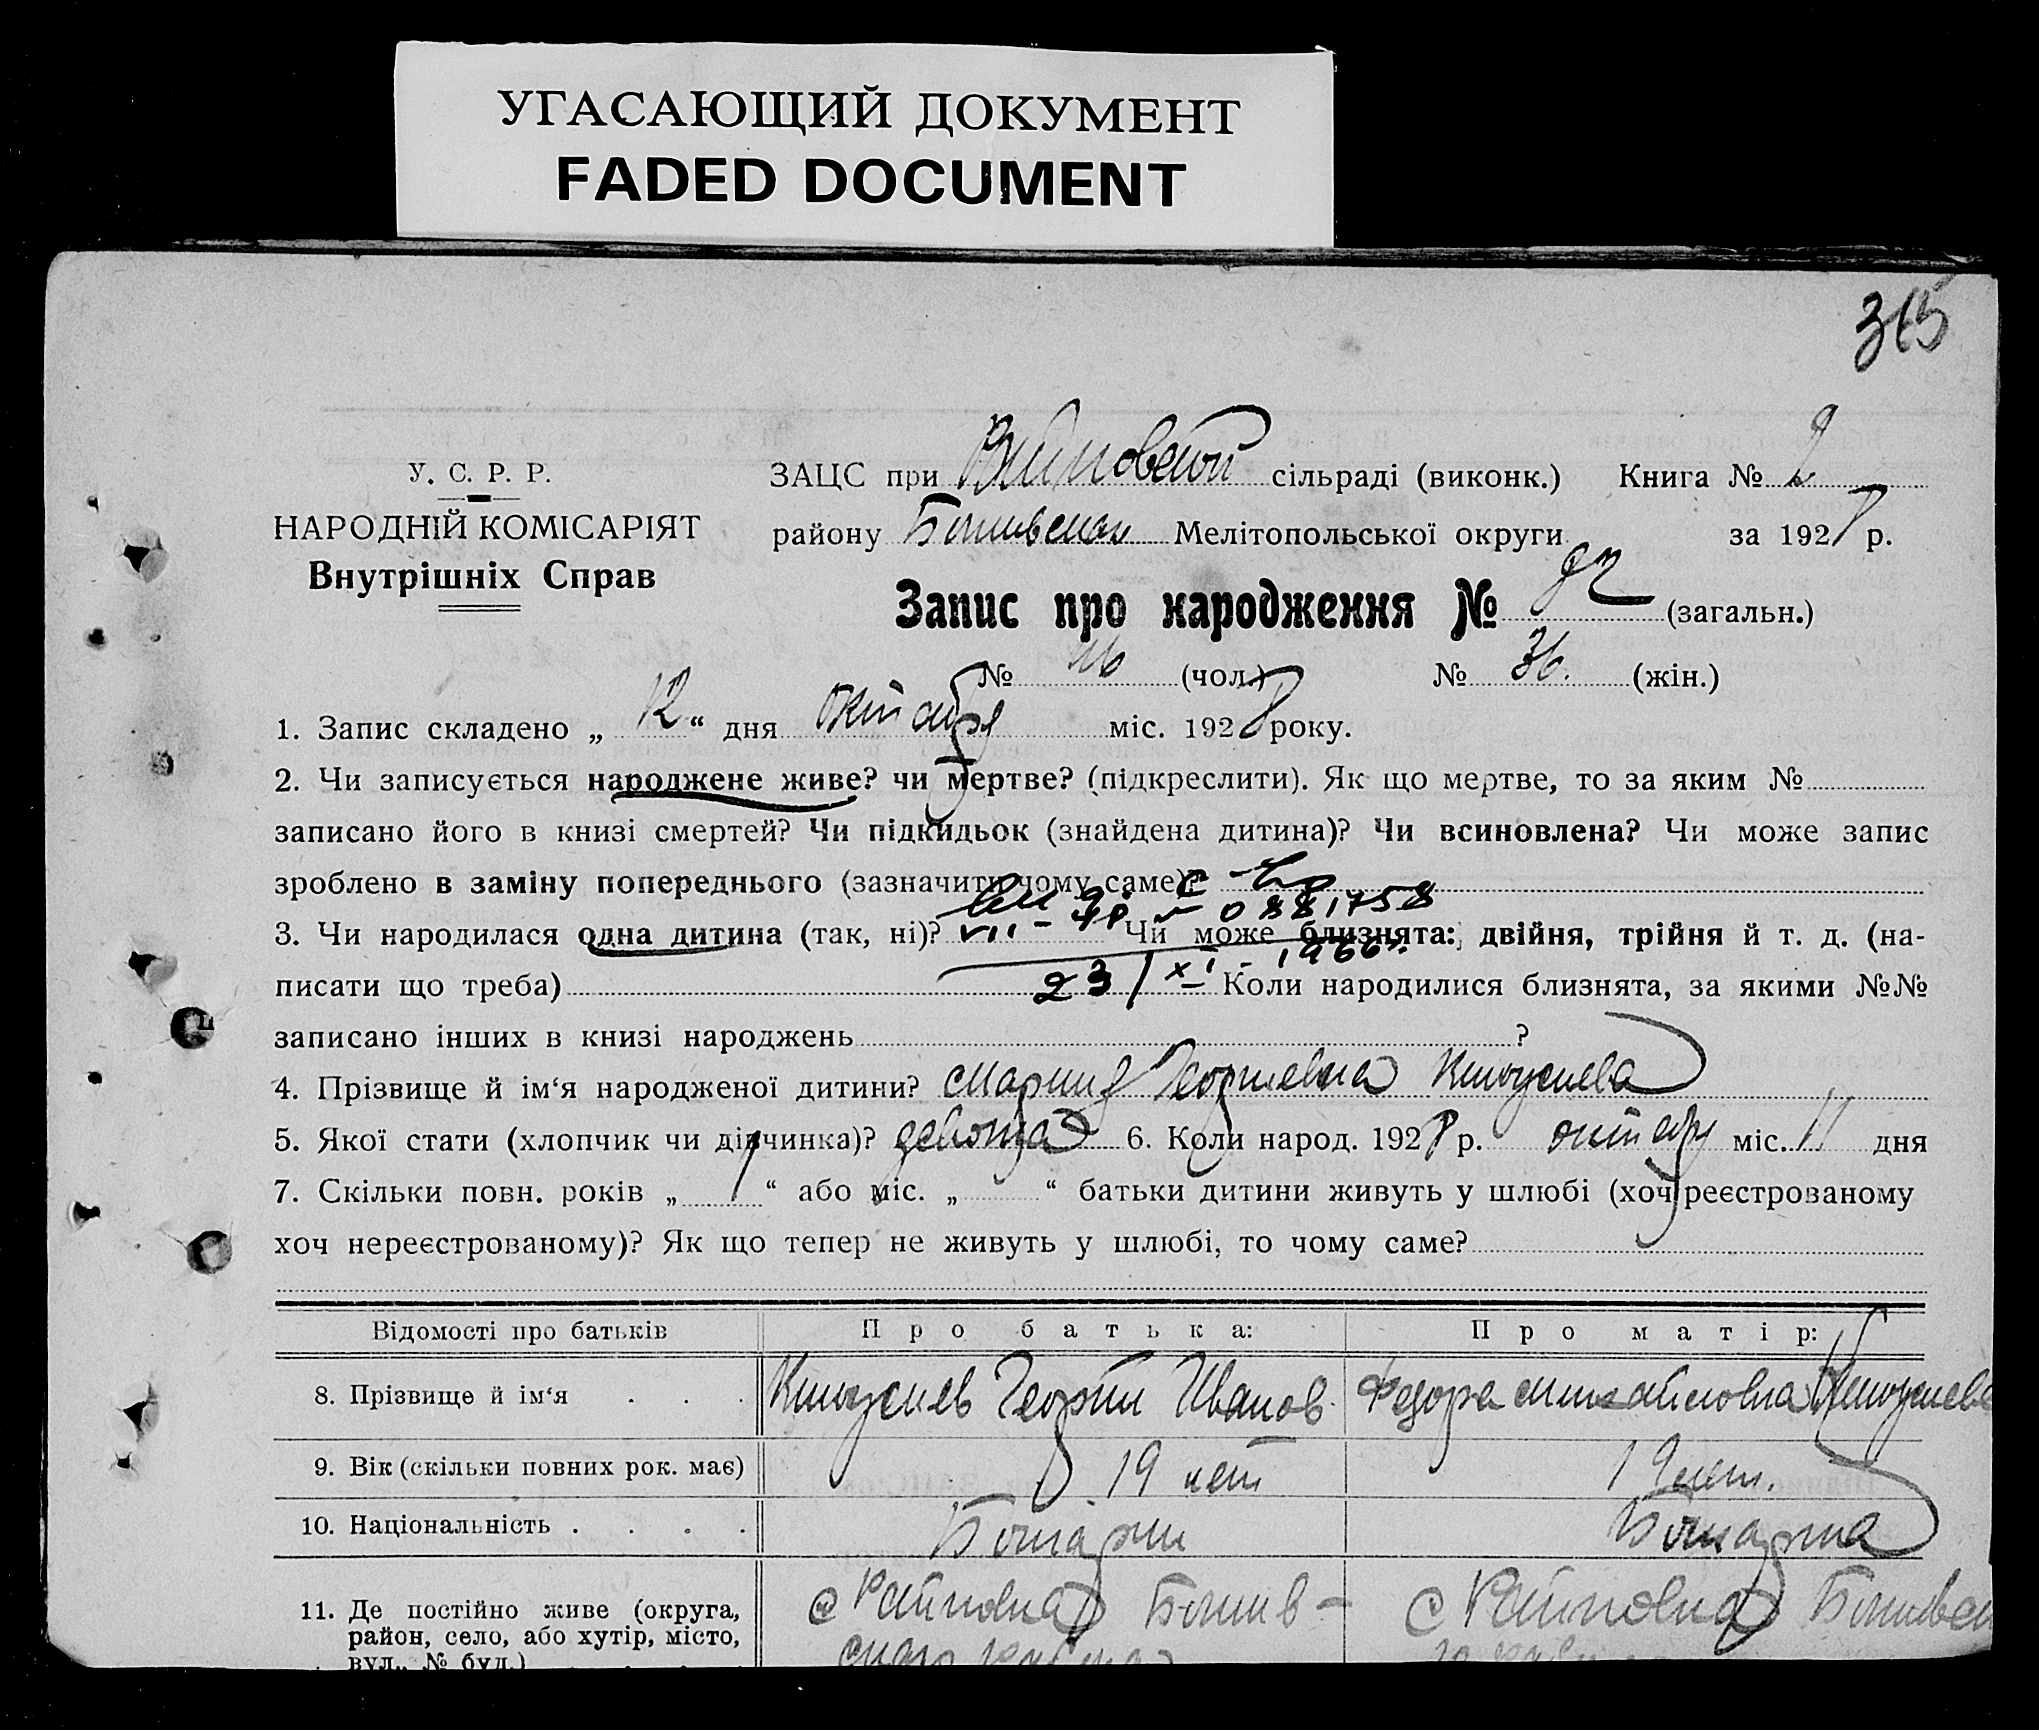 УГАСАЮЩИЙ ДОКУМЕНТ
FADED DOCUMENT
315
У. С. Р. Р.
НАРОДНІЙ КОМІСАРІЯТ
Внутрішніх Справ
ЗАЦС при сільраді (виконк.) Книга № 2
району Мелітопольської округи за 1928 р.
Запис про народження № 82 (загальн.)
№ 46 (чол.) № 36. (жін.)
1. Запис складено „ 12 “ дня октября міс. 1928 року.
2. Чи записується народжене живе? чи мертве? (підкреслити). Як що мертве, то за яким №
записано його в книзі смертей? Чи підкидьок (знайдена дитина)? Чи всиновлена? Чи може запис
зроблено в заміну попереднього (зазначити чому саме)?
VII - № 0881758
3. Чи народилася одна дитина (так, ні)? Чи може близнята: двійня, трійня й т. д. (на-
23/XI - 1966г.
писати що треба) Коли народилися близнята, за якими №№
записано інших в книзі народжень ?
4. Прізвище й ім‘я народженої дитини? Мария Георгиевна
5. Якої стати (хлопчик чи дівчинка)? девочка 6. Коли народ. 1928 р. октябр міс. 11 дня
7. Скільки повн. років „ 1 “ або міс. „ “ батьки дитини живуть у шлюбі (хоч реєстрованому
хоч нереєстрованому)? Як що тепер не живуть у шлюбі, то чому саме?
Відомості про батьків Про батька: Про матір:
8. Прізвище й ім‘я . . . Георгий Иванов. Федора Михайловна
9. Вік (скільки повних рок. має) 19 лет 19 лет.
10. Національність . . . . Болгарин Болгарка
11. Де постійно живе (округа, с Райновка Ботиев- с Райновка
район, село, або хутір, місто,
вул., № буд.)